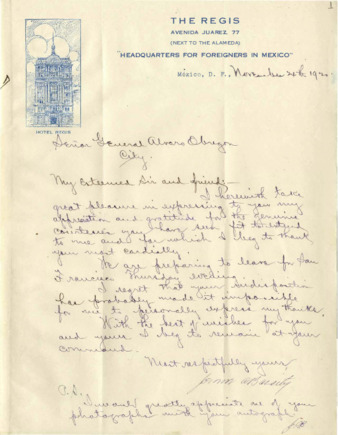 1
THE REGIS
AVENIDA JUAREZ, 77
(NEXT TO THE ALAMEDA)
"HEADQUARTERS FOR FOREIGNERS IN MEXICO"
México, D. F., November 24th 192
HOTEL REGIS
Senior General Alvaro Obregon
City.
My Esteemed Sir and friend:-
I herewith take
great pleasure in expressing to you my
appreciation and gratitude for the genuine
courtesies you have seen fit to extend
to me and for which I beg to thank
you most cordially.
We are preparing to leave for San
Francisco Thursday evening.
I regret that your indisposition
has probably made it impossible
for me to personally express my thanks.
With the best of wishes for you
and yours I beg to remain at your
command.
Most respectfully yours,
P.S.
I would greatly appreciate one of your
photographs with your autograph